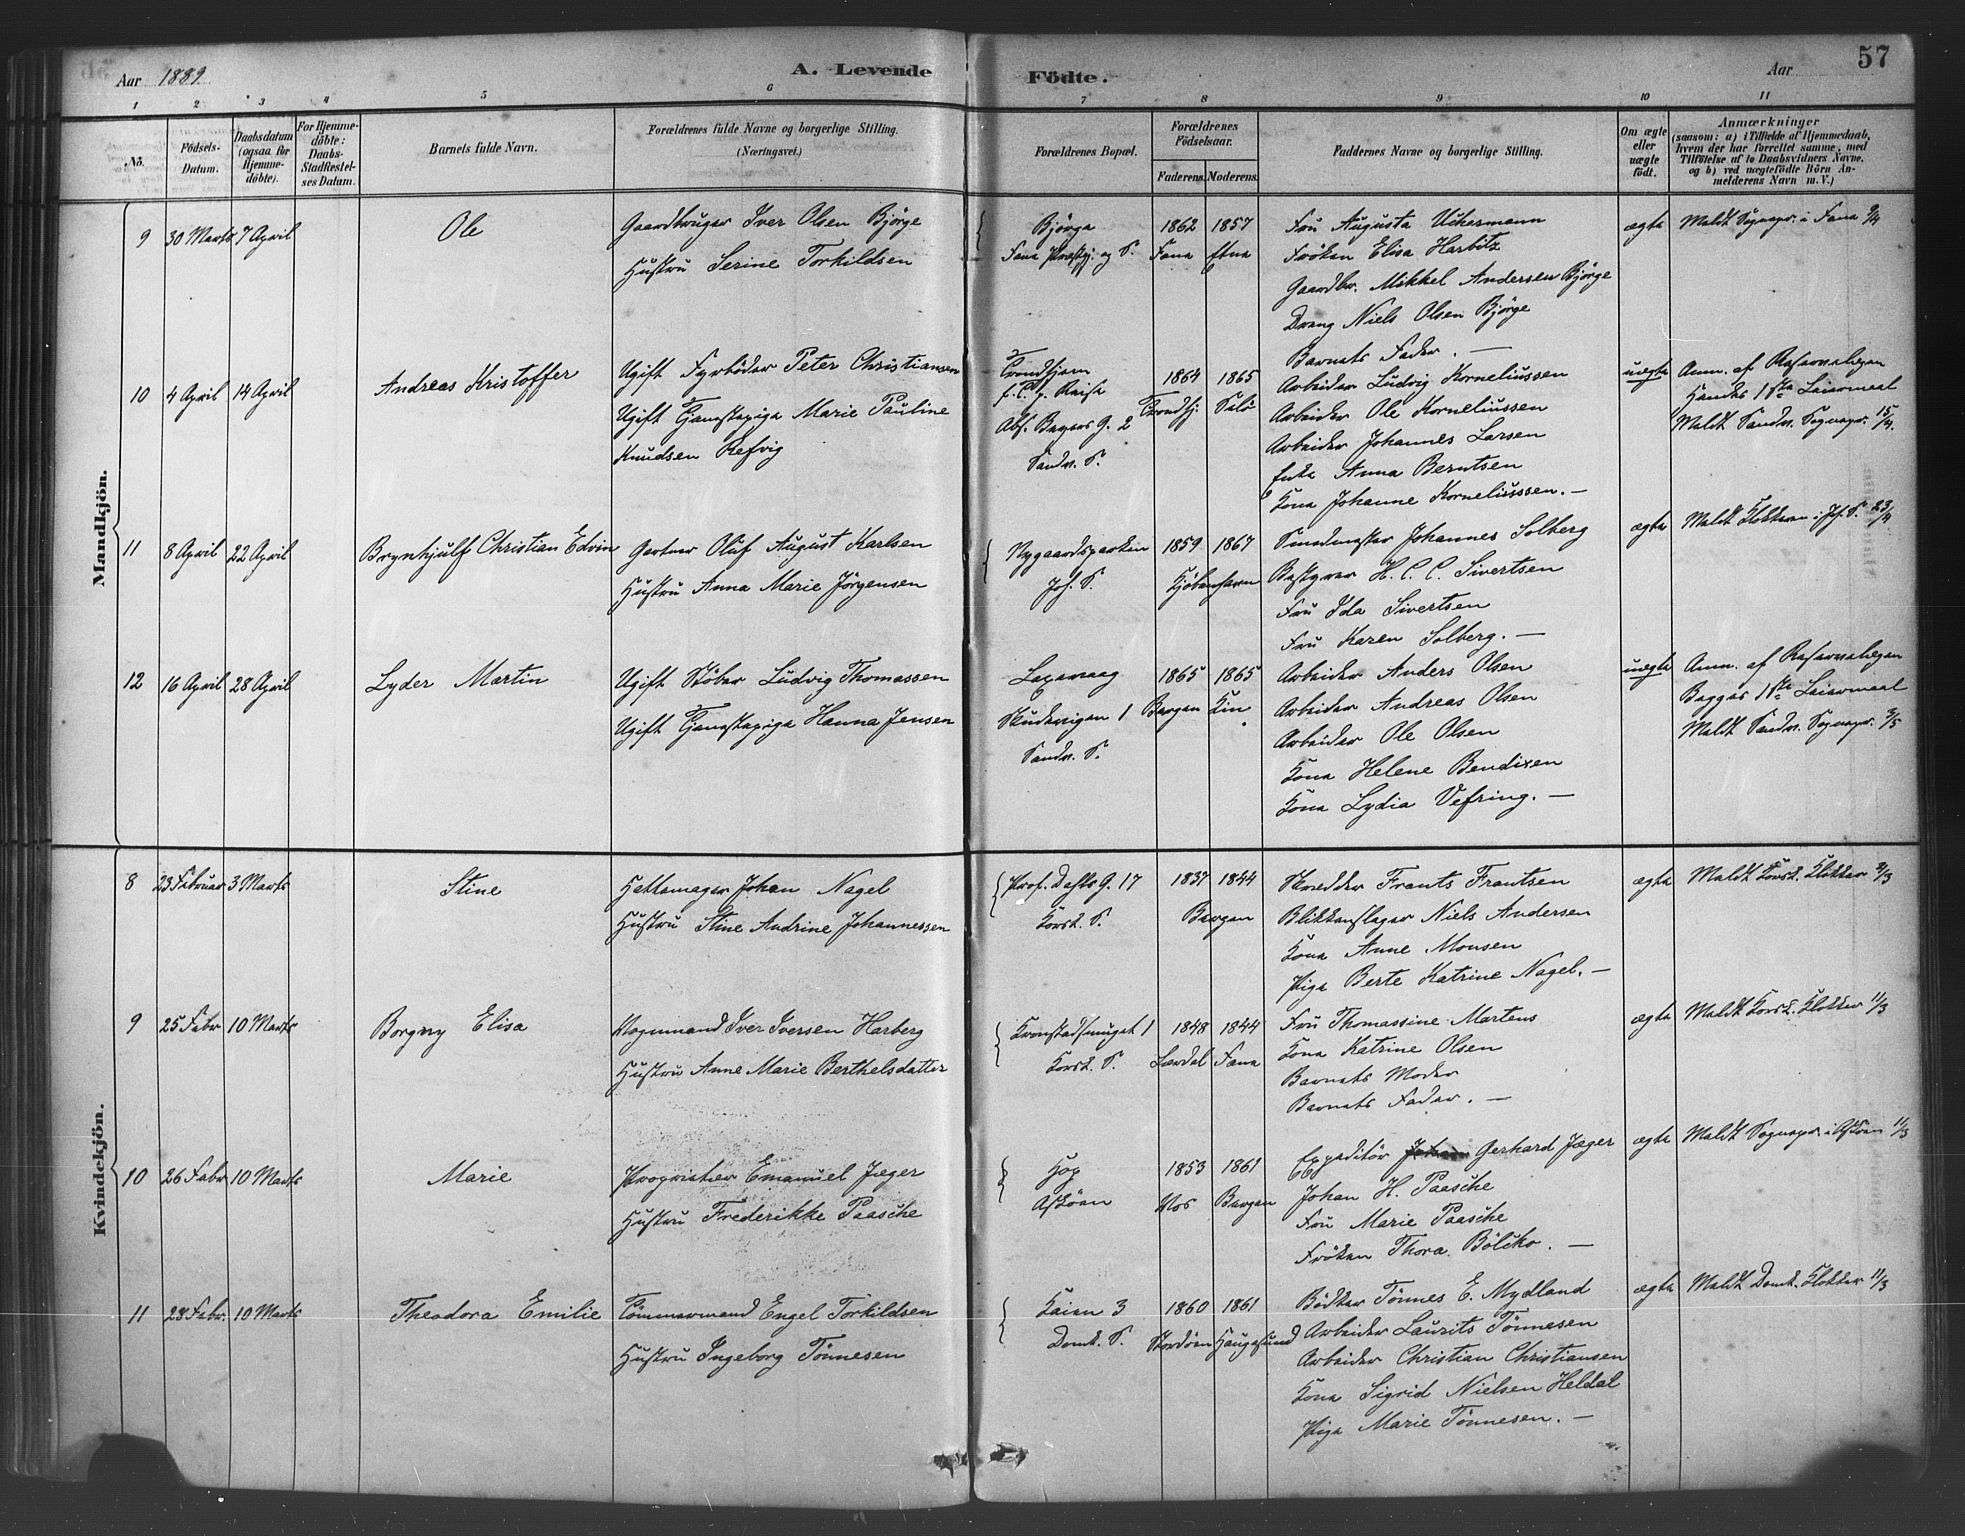 57
Aar 1889
A. Levende Födte.
Aar
1 2 3 4 5 6 7 8 9 10 11
No.
Födsels-Datum.
Daabsdatum (ogsaa for Hjemme-döbte).
For Hjemme-döbte: Daabs-Stadfæstel-ses Datum.
Barnets fulde Navn.
Forældrenes fulde Navne og borgerlige Stilling. (Næringsvei.)
Forældrenes Bopæl.
Forældrenes Födselsaar.
Faderens. Moderens.
Faddernes Navne og borgerlige Stilling.
Om ægte eller uægte födt.
Anmærkninger
(saasom: a) i Tilfælde af Hjemmedaab, hvem der har forrettet samme, med Tilföielse af to Daabsvidners Navne, og b) ved uægtefödte Börn An-melderens Navn m.V.)
Mandkjön.
9 30 Marts 7 April Ole
Gaardbruger Iver Olsen Bjørge
Hustru Serine Torkildsen
Bjørge
Fana Præstgj. og S.
1862 1857
Fana Etne
Fru Augusta Uchermann
Frøken Elisa Harbitz
Gaardbr. Mikkel Andersen Bjørge
Dreng Niels Olsen Bjørge
Barnets Fader. —
ægte
Meldt Sognepr. i Fana 9/4
10 4 April 14 April Andreas Kristoffer
Ugift Fyrbøder Peter Christiansen
Ugift Tjenestepige Marie Pauline
Knudsen Refvig
Trondhjem
Sandv. S.
1864 1865
Trondhj. Selø
Arbeider Ludvig Korneliussen
Arbeider Ole Korneliussen
Arbeider Johannes Larsen
Enke Anna Berntsen
Kone Johanne Korneliusssen. —
uægte
Anm. af Reservelægen
Hendes 1ste Leiermaal
Meldt Sandv. Sognepr. 15/4.
11 8 April 22 April Brynhjulf Christian Edvin
Gartner Oluf August Karlsen
Hustru Anna Marie Jørgensen
Nygaardsparken
Joh. S.
1859 1867
Kjøbenhavn
Smedmester Johannes Solberg
Bestyrer H. C. C. Sivertsen
Fru Ida Sivertsen
Fru Karen Solberg. —
ægte
Meldt Klokkeren i Joh. S. 23/4
12 16 April 28 April Lyder Martin
Ugift Støber Ludvig Thomassen
Ugift Tjenestepige Hanna Jensen
Laxevaag
Skudevigen 1
Sandv. S.
1865 1865
Bergen Kin
Arbeider Anders Olsen
Arbeider Andreas Olsen
Arbeider Ole Olsen
Kone Helene Bendixen
Kone Lydia Vefring. —
uægte
Anm. af Reservelægen
Begges 1ste Leiermaal
Meldt Sandv. Sognepr. 2/5
Kvindekjön.
8 23 Februar 3 Marts Stine
Hattemager Johan Nagel
Hustru Stine Andrine Johannessen
Prof. Dahls G. 17
Korsk. S.
1837 1844
Bergen
Skredder Frants Frantsen
Blikkenslager Niels Andersen
Kone Anne Monsen
Pige Berte Katrine Nagel. —
ægte
Meldt Korsk. Klokker 3/3
9 25 Febr 10 Marts Borgny Elisa
Vognmand Iver Iversen Harberg
Hustru Anne Marie Berthelsdatter
Kronstadsmuget 1
Korsk. S.
1848 1844
Lærdal Fana
Fru Thomassine Martens
Kone Katrine Olsen
Barnets Moder
Barnets Fader. —
ægte
Meldt Korsk. Klokker 11/3
10 26 Febr 10 Marts Marie
Proprietær Emanuel Jæger
Hustru Frederikke Paasche
Hop
Askøen
1853 1861
Vos Bergen
Expeditør Gerhard Jæger
Johan H. Paasche
Fru Marie Paasche
Frøken Thora Bölcko. —
ægte
Meldt Sognepr. i Askøen 11/3
11 28 Febr. 10 Marts Theodora Emilie
Tømmermand Engel Torkildsen
Hustru Ingeborg Tønnesen
Kaien 3
Domk. S.
1860 1861
Stordøen Haugesund
Bødker Tønnes E. Mydland
Arbeider Laurits Tønnesen
Arbeider Christian Christiansen
Kone Sigrid Nielsen Heldal
Pige Marie Tønnesen. —
ægte
Meldt Domk. Klokker 11/3